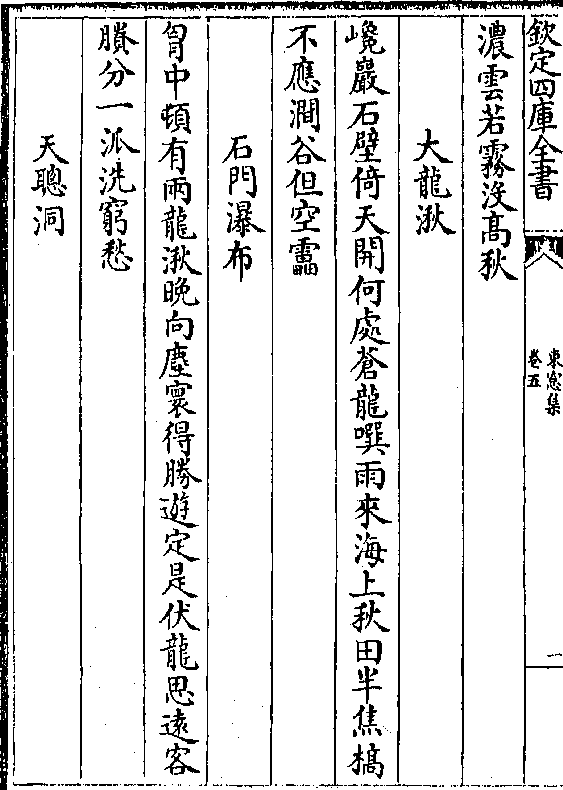 欽定四庫全書
東窻集
卷五
一
濃雲若霧沒髙秋
大龍湫
巉巖石壁倚天開何處蒼龍噀雨來海上秋田半焦槁
不應澗谷但空靁
石門瀑布
胷中頓有兩龍湫晚向塵寰得勝遊定是伏龍思遠客
賸分一派洗窮愁
天聰洞